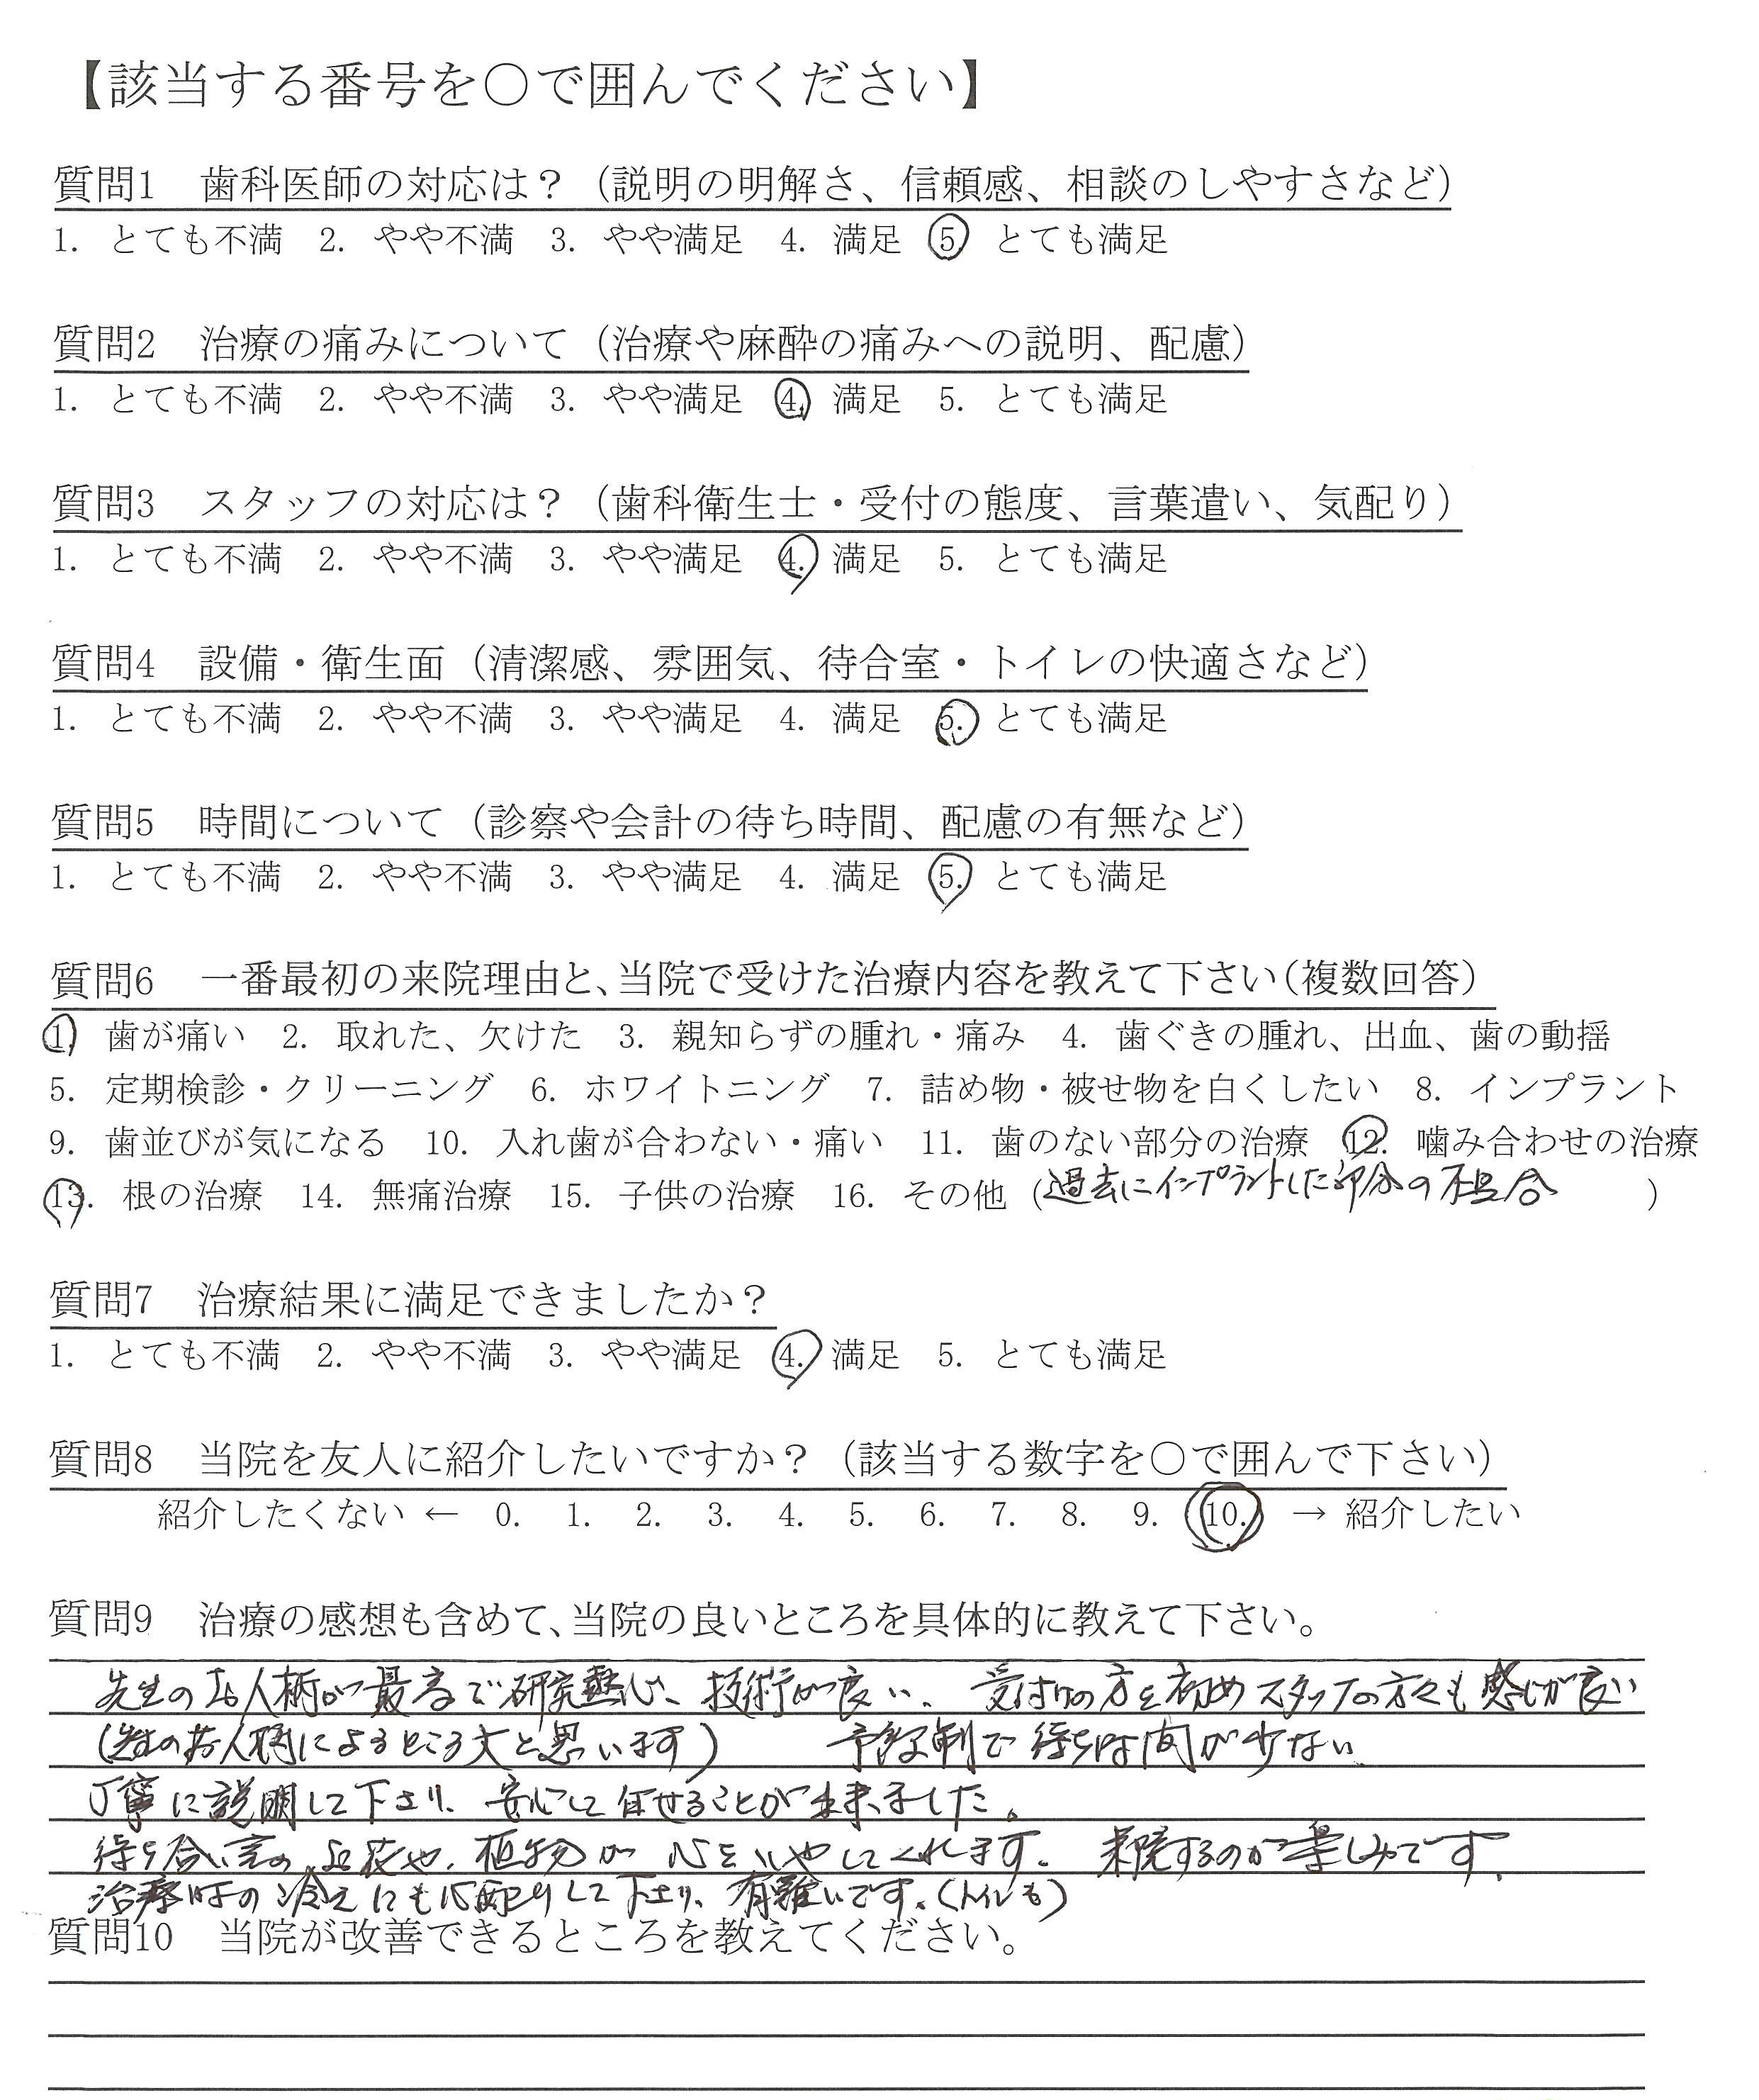 【該当する番号を○で囲んでください】
質問1　歯科医師の対応は？（説明の明解さ、信頼感、相談のしやすさなど）
1. とても不満　2. やや不満　3. やや満足　4. 満足　5. とても満足
質問2　治療の痛みについて（治療や麻酔の痛みへの説明、配慮）
1. とても不満　2. やや不満　3. やや満足　4. 満足　5. とても満足
質問3　スタッフの対応は？（歯科衛生士・受付の態度、言葉遣い、気配り）
1. とても不満　2. やや不満　3. やや満足　4. 満足　5. とても満足
質問4　設備・衛生面（清潔感、雰囲気、待合室・トイレの快適さなど）
1. とても不満　2. やや不満　3. やや満足　4. 満足　5. とても満足
質問5　時間について（診察や会計の待ち時間、配慮の有無など）
1. とても不満　2. やや不満　3. やや満足　4. 満足　5. とても満足
質問6　一番最初の来院理由と、当院で受けた治療内容を教えて下さい（複数回答）
1. 歯が痛い　2. 取れた、欠けた　3. 親知らずの腫れ・痛み　4. 歯ぐきの腫れ、出血、歯の動揺
5. 定期検診・クリーニング　6. ホワイトニング　7. 詰め物・被せ物を白くしたい　8. インプラント
9. 歯並びが気になる　10. 入れ歯が合わない・痛い　11. 歯のない部分の治療　12. 噛み合わせの治療
13. 根の治療　14. 無痛治療　15. 子供の治療　16. その他（過去にインプラントした部分の不具合）
質問7　治療結果に満足できましたか？
1. とても不満　2. やや不満　3. やや満足　4. 満足　5. とても満足
質問8　当院を友人に紹介したいですか？（該当する数字を○で囲んで下さい）
紹介したくない ← 0. 1. 2. 3. 4. 5. 6. 7. 8. 9. 10. → 紹介したい
質問9　治療の感想も含めて、当院の良いところを具体的に教えて下さい。
先生のお人柄が最高で研究熱心、技術が良い、受付けの方を初めスタッフの方々も感じが良い
（先生のお人柄によるところ大と思います）　予約制で待ち時間が少ない
丁寧に説明して下さり、安心して任せることが出来ました。
待ち合い室のお花や、植物が心をいやしてくれます。来院するのが楽しみです、
治療時の冷えにも心配りして下さり、有難いです。（トイレも）
質問10　当院が改善できるところを教えてください。